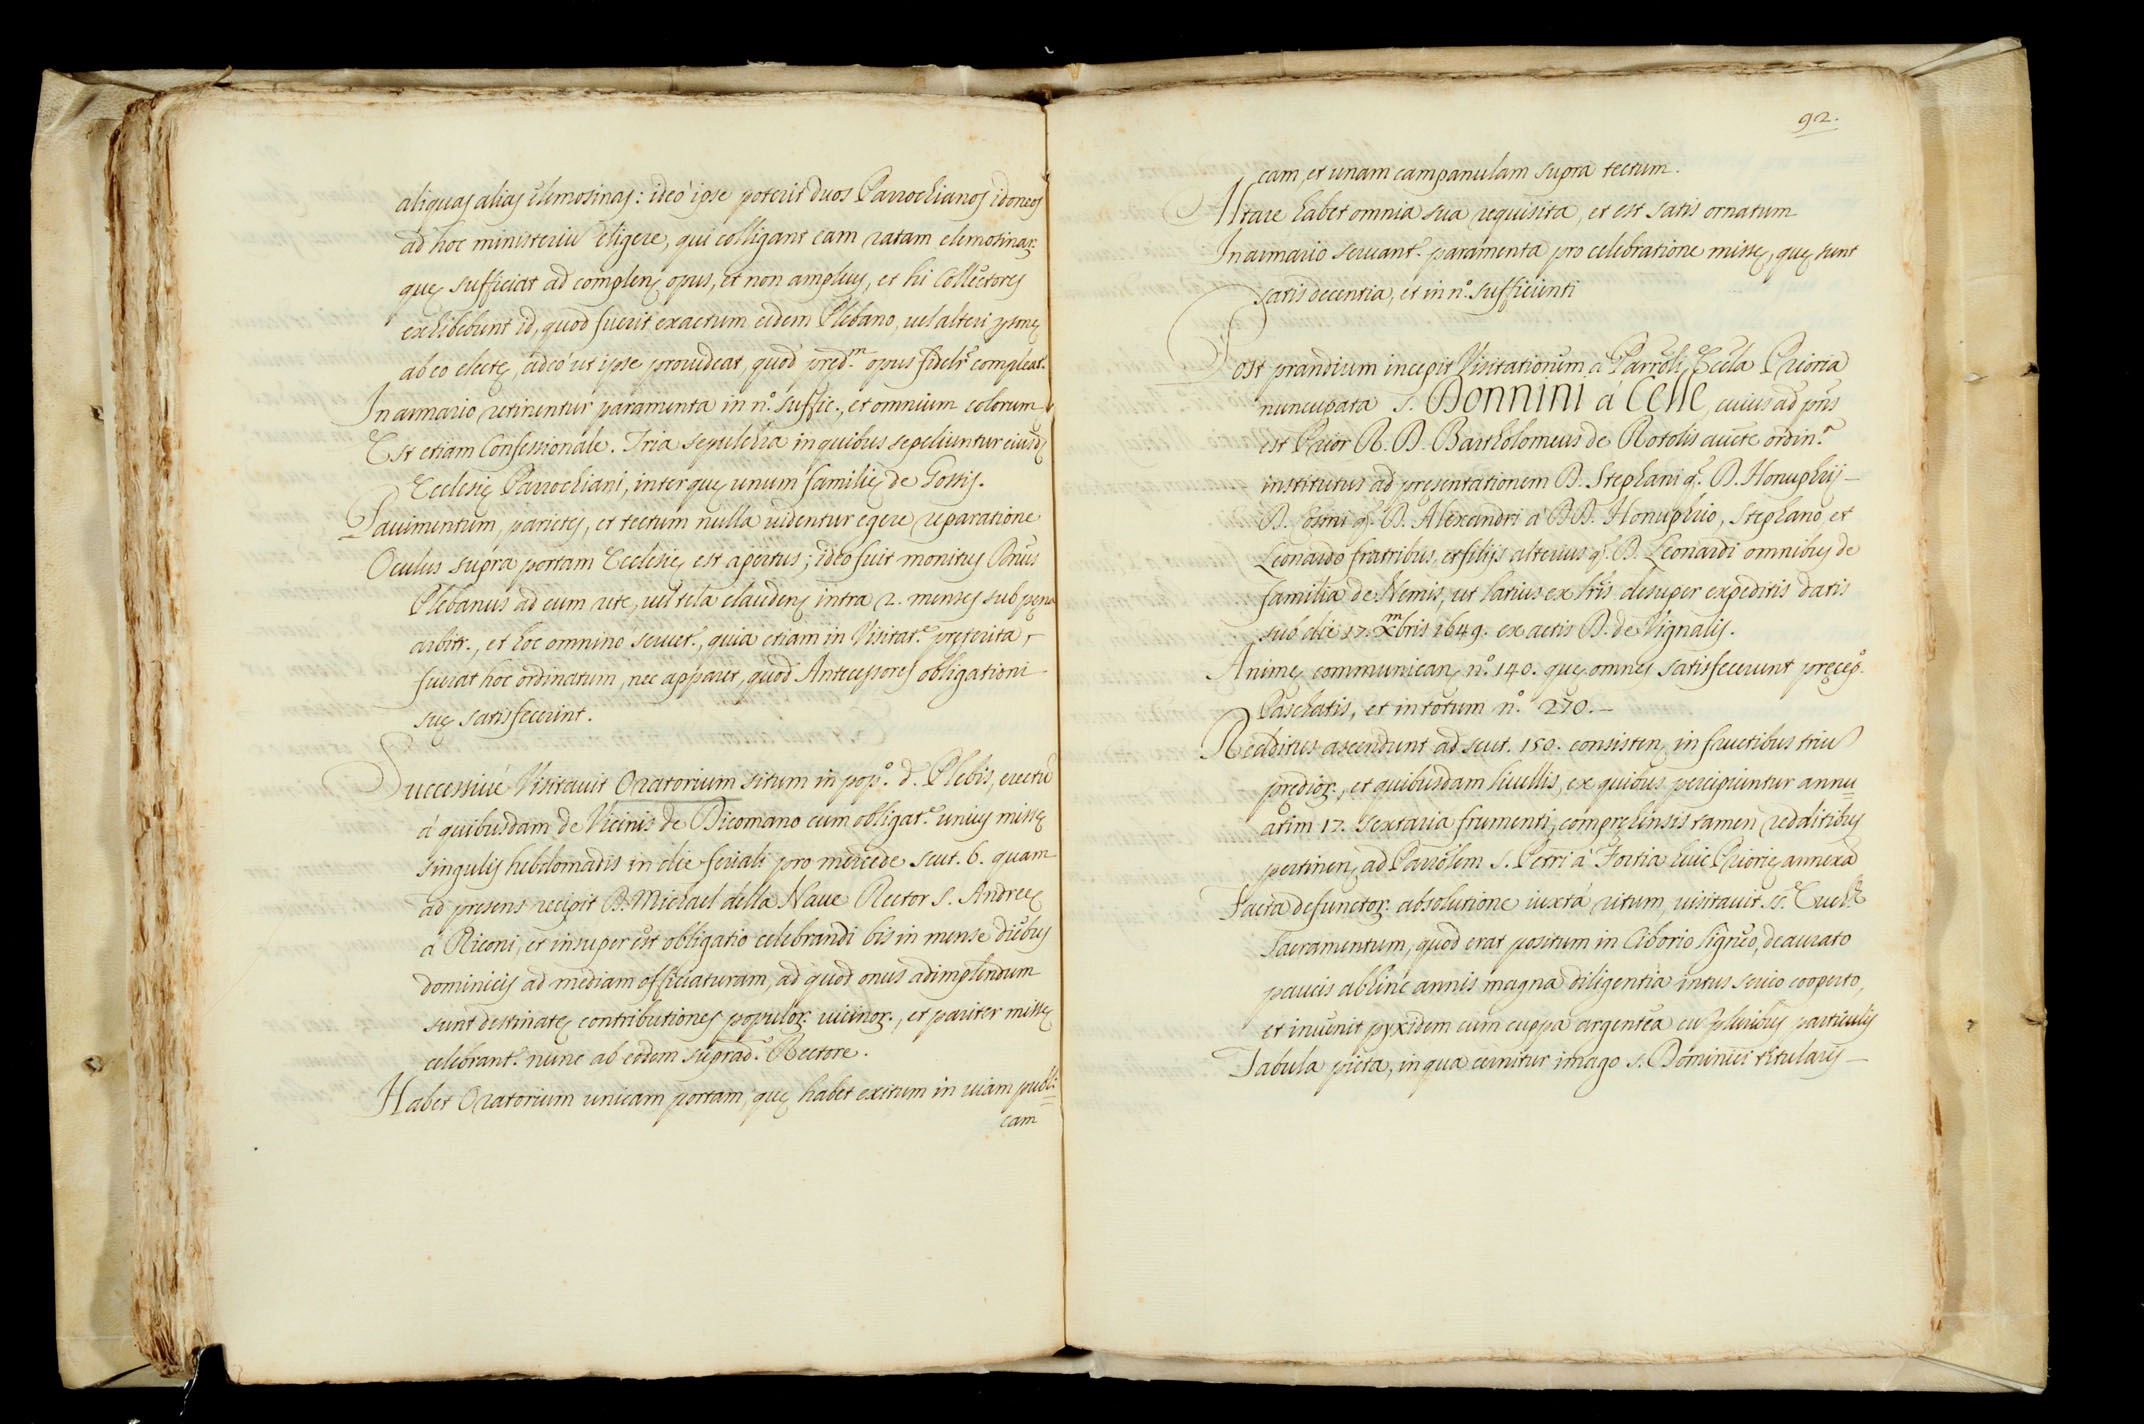 aliquas alias elemosinas: ideò ipse poterit duos Parrochianos idoneos
ad hoc ministeriũ eligere, qui colligant eam ratam elemosinar.
quę sufficiat ad complenḍ opus, et non amplius, et hi Collectores
exhibebunt id, quod fuerit exactum eidem Plebano, vel alteri psonę
ab eo electę, adeò ut ipse provideat, quod pred.m opus fidelr compleat.
In armario retinentur paramenta in n.º suffic., et omnium colorum
Est etiam Confessionale. Tria sepulchra in quibus sepeliuntur eiusd
Ecclesię Parrochiani, inter quę unum familię de Gossis.
Pavimentum, parietes, et tectum nulla videntur egere reparatione
Oculus supra portam Ecclesię est apertus; ideo fuit monitus Dnus
Plebanus ad eum rete, vel tela claudenḍ intra 2. menses sub pena
arbitr., et hoc omninò servet., quia etiam in Visitat.e preterita
fuerat hoc ordinatum, nec apparet, quod Antecessores obligationi
suę satisfecerint.
Successivè Visitavit Oratorium situm in pop.º d. Plebis, erectũ
à quibusdam de Vicinis de Dicomano cum obligat.e unius missę
singulis hebdomadis in die feriali pro mercede scut. 6. quam
ad presens recipit D. Michael della Nave Rector S. Andreę
à Riconi, et insuper est obligatio celebrandi bis in mense diebus
dominicis ad mediam officiaturam, ad quod onus adimplendum
sunt destinatę contributiones populor. vicinor., et pariter missę
celebrant. nunc ab eodem suprad.º Rectore.
Habet Oratorium unicam portam, quę habet exitum in viam publi=
cam
92.
cam, et unam campanulam supra tectum.
Altare habet omnia sua requisita, et est satis ornatum
In armario servant. paramenta pro celebratione missę, quę sunt
satis decentia, et in n.º sufficienti
Post prandium incepit Visitationem à Parroli Eccla Prioria
nuncupata S. Donnini à Celle, cuius ad prñs
est Prior R. D. Bartholomeus de Rotolis aucte ordin.a
institutus ad presentationem D. Stephani q. D. Honuphrij
D. Cosmi q. D. Alexandri à DD. Honuphrio, Stephano, et
Leonardo fratribus, et filijs alterius q. D. Leonardi omnibus de
familia de Nemis, ut latius ex lris desuper expeditis datis
sub die 17. Xmbris 1649. ex actis D. de Vignalis.
Animę communicanḍ n.º 140. quę omnes satisfecerunt precep.º
Paschatis, et in totum n.º 270.
Redditus ascendunt ad scut. 150. consistenṭ in fructibus triũ
predior., et quibusdam livellis, ex quibus percipiuntur annu=
atim 17. sextaria frumenti, comprehensis tamen redditibus
pertinenṭ ad Parrolem S. Petri à Fortia huic Priorię annexã
Facta defunctor. absolutione iuxtà ritum, visitavit SS. Euch.e
Sacramentum, quod erat positum in Ciborio ligneo, deaurato
paucis abhinc annis magna diligentia intus serico cooperto,
et invenit pyxidem cum cuppa argentea cũ pluribus particulis
Tabula picta, in qua cernitur imago S. Dominici titularis